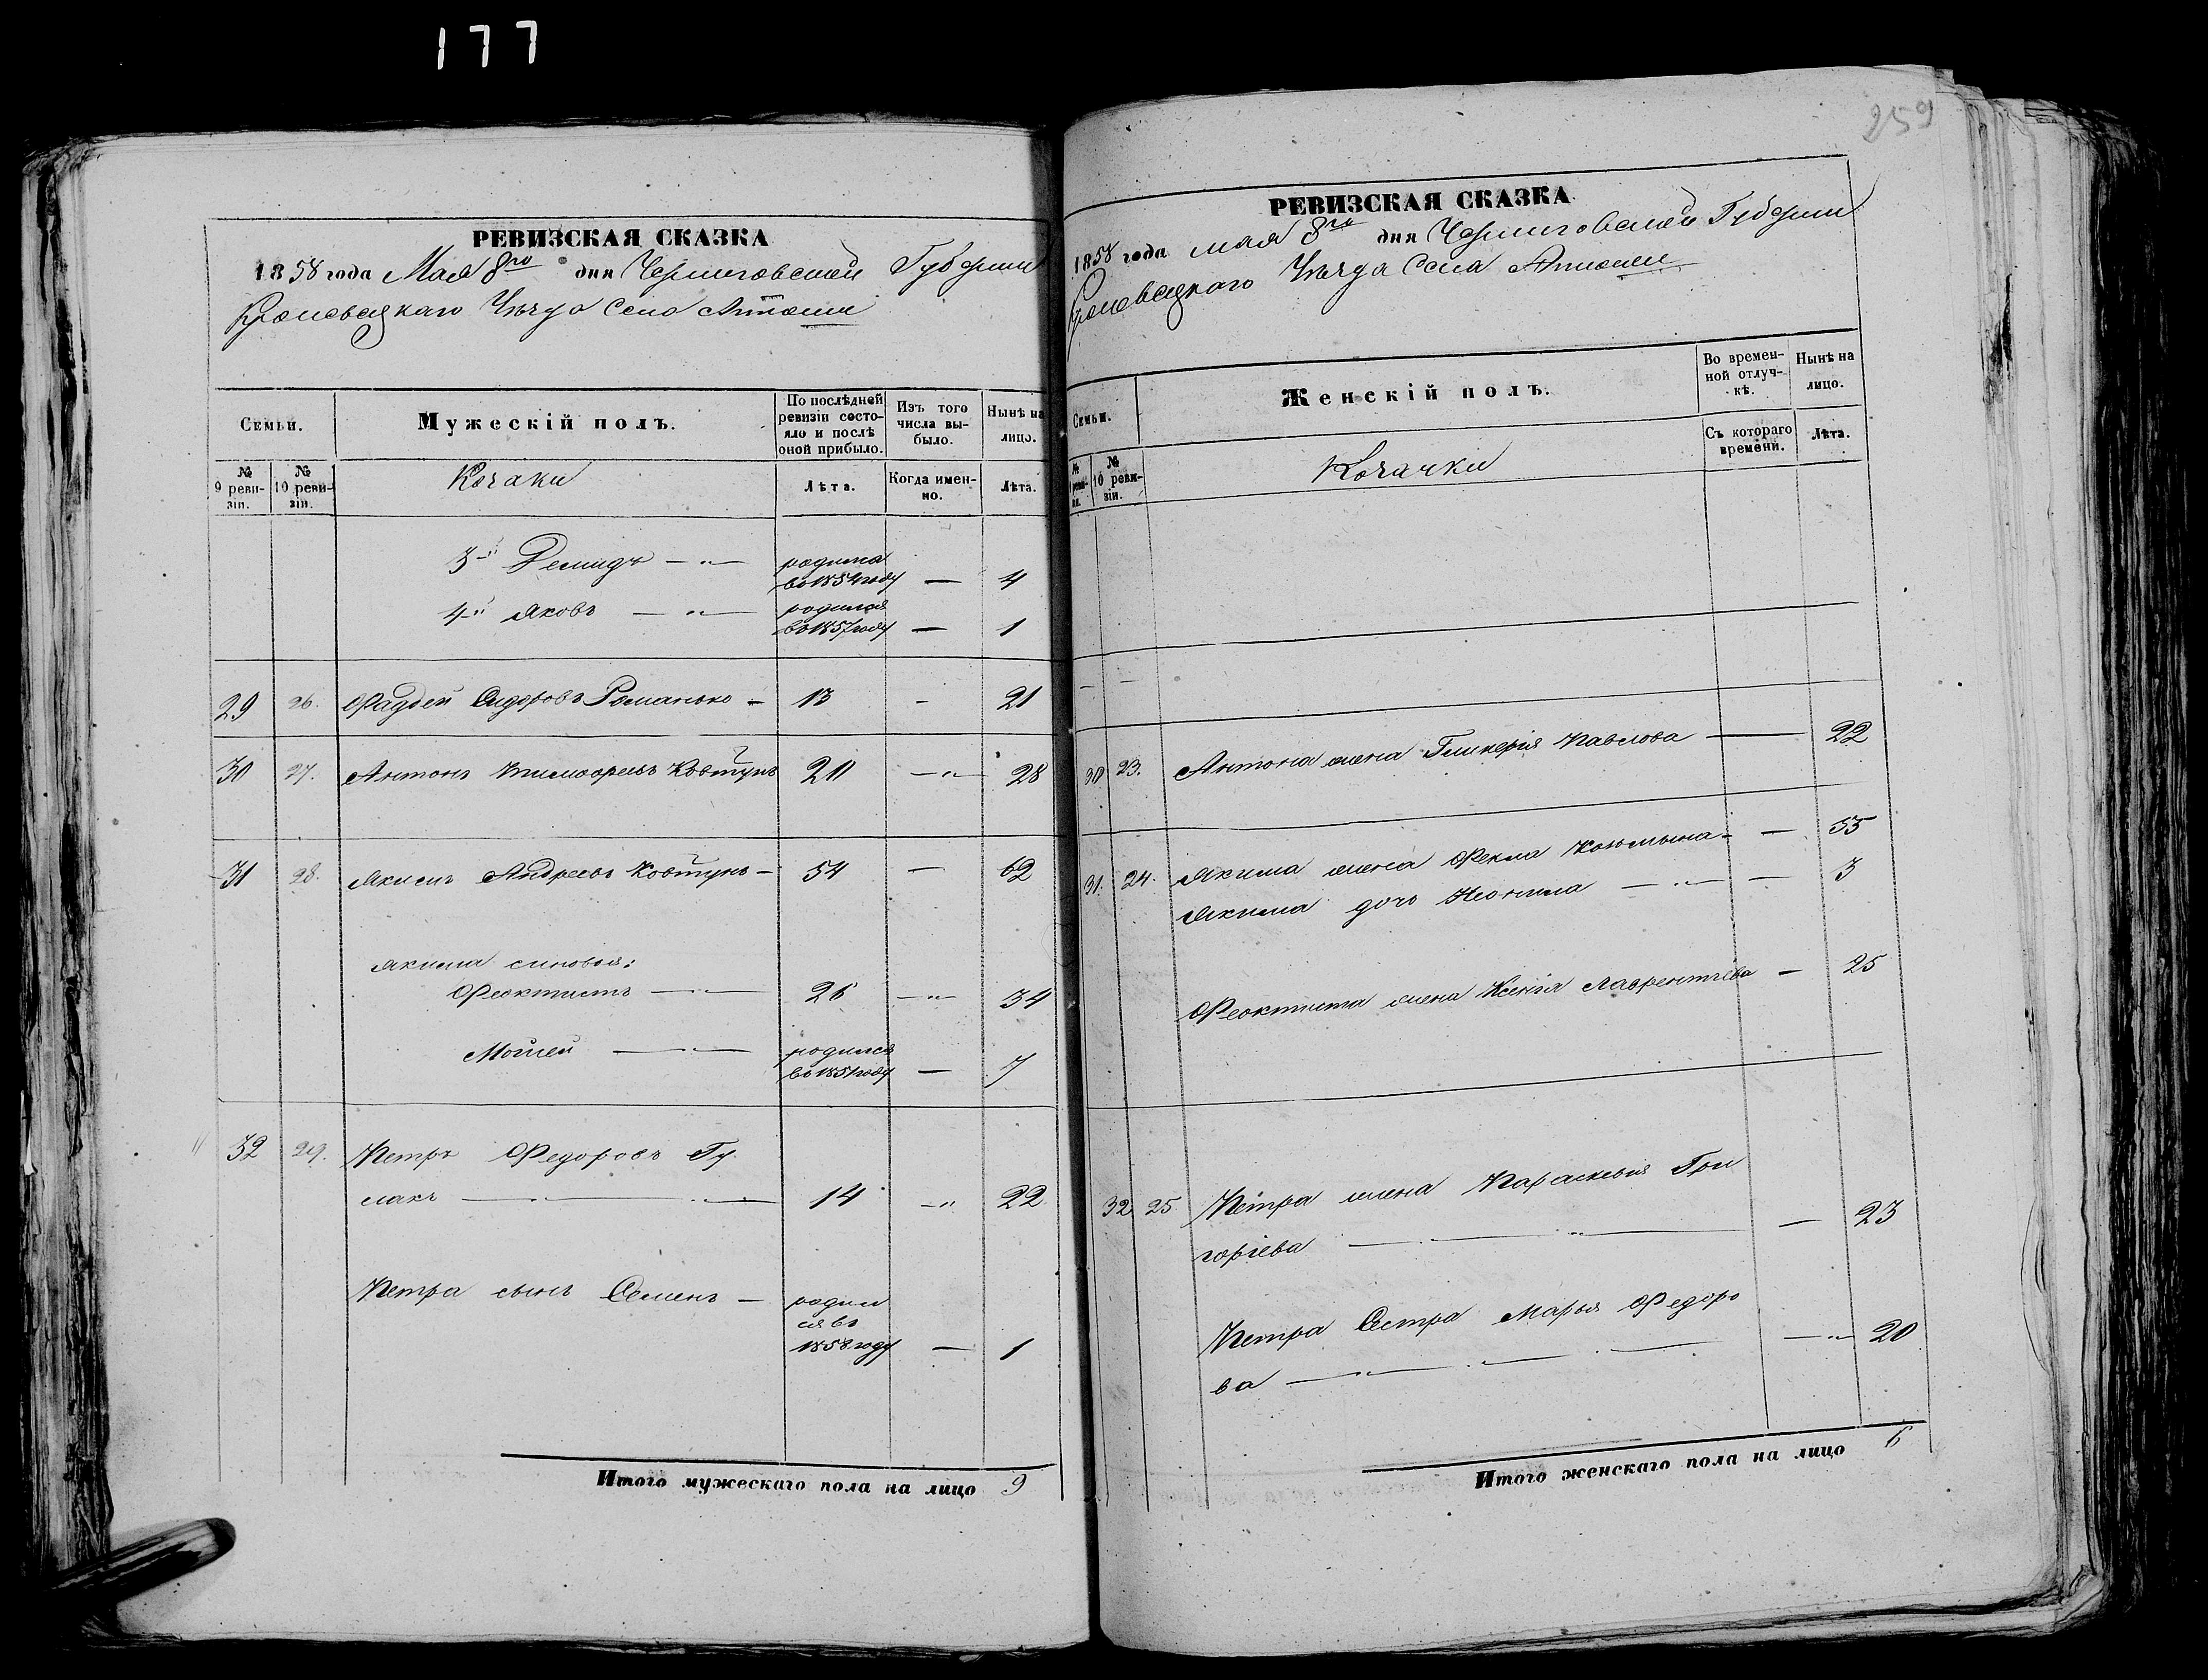 177
РЕВИЗСКАЯ СКАЗКА
1858 года Мая 8го дня Черниговской Губернии
Кролевецкаго Уѣзда Села
Семьи.
Мужескій полъ.
По послѣдней ревизіи состояло и послѣ оной прибыло.
Изъ того числа выбыло.
Нынѣ на лицо.
№ 9 ревизіи.
№ 10 ревизіи.
Козаки
Лѣта.
Когда именно.
Лѣта.
3й Демидъ — „ — родился
въ 1854 году — 4
4й Яковъ — „ — родился
въ 1857 году — 1
29 26. Фадѣй Сидоровъ Романько - 13 - 21
30 27. Антонъ Тимофеевъ Ковтунъ 20 — „ — 28
31 28. Якимъ Андреевъ Ковтунъ — 54 — 62
Якима сыновья:
Феоктистъ — „ — 26 — „ — 34
Мойсей — „ — родился
въ 1851 году — 7
32 29. Петръ Федоровъ Гу
лакъ — „ — „ — 14 — „ 22
Петра сынъ Семенъ — родил
ся въ
1858 году — 1
Итого мужескаго пола на лицо 9
259
РЕВИЗСКАЯ СКАЗКА
1858 года мая 8го дня Черниговской Губернии
Кролевецкаго Уѣзда Села
Семьи.
Женскій полъ.
Во временной отлучкѣ.
Нынѣ на лицо.
№ 9 ревизіи.
№ 10 ревизіи.
Козачки
Съ котораго времени.
Лѣта.
— —
30 23. Антона жена Гликерія Павлова — 22
31. 24. Якима жена Фекла Козьмина - — 55
Якима дочь Неонила — „ — — 3
Феоктиста жена Ксенія Лаврентіева — 25
32 25 Петра жена Параскевія Гри
горіева — „ — — 23
Петра Сестра Марья Федоро
ва — „ — „ — — „ — 20
Итого женскаго пола на лицо 6